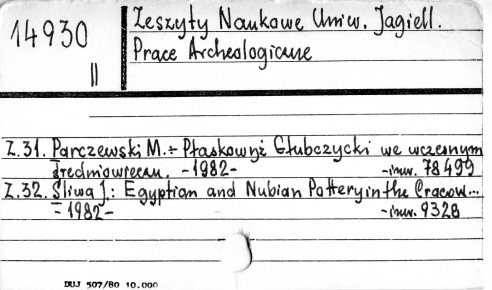 14930
II
Zeszyty Naukowe Uniw. Jagiell.
Prace Archeologiczne
Z.31. Parczewski M. - Płaskowyż Głubczycki we wczesnym
średniowieczu. -1982- -inw. 78499
Z.32. Śliwa J.: Egyptian and Nubian Pottery in the Cracow...
- 1982- -inw. 9328
DUJ 507/80 10.000